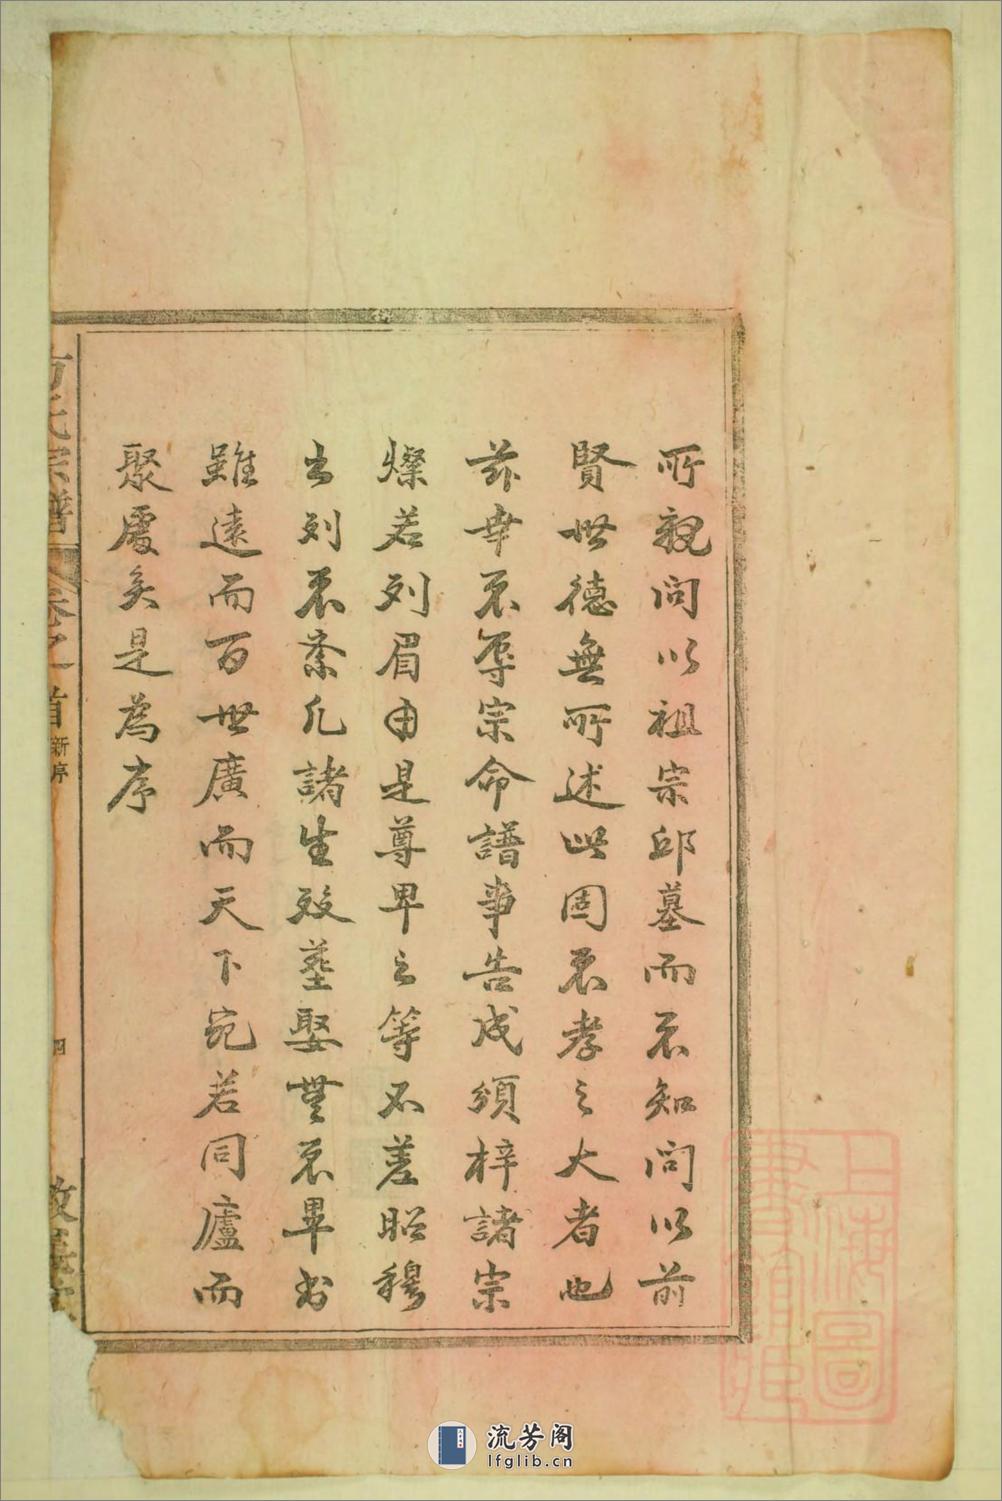 所親問以祖宗邱墓而不知問以前
賢世德無所述此固不孝之大者也
茲幸不辱宗命譜事告成須梓諸宗
燦若列眉由是尊卑之等不差昭穆
之列不紊凡諸生殁塟娶無不畢書
雖遠而百世廣而天下宛若同廬而
聚處矣是為序
方氏宗譜
卷之首
新序
四
敦
上海圖書館藏
流芳阁
lfglib.cn